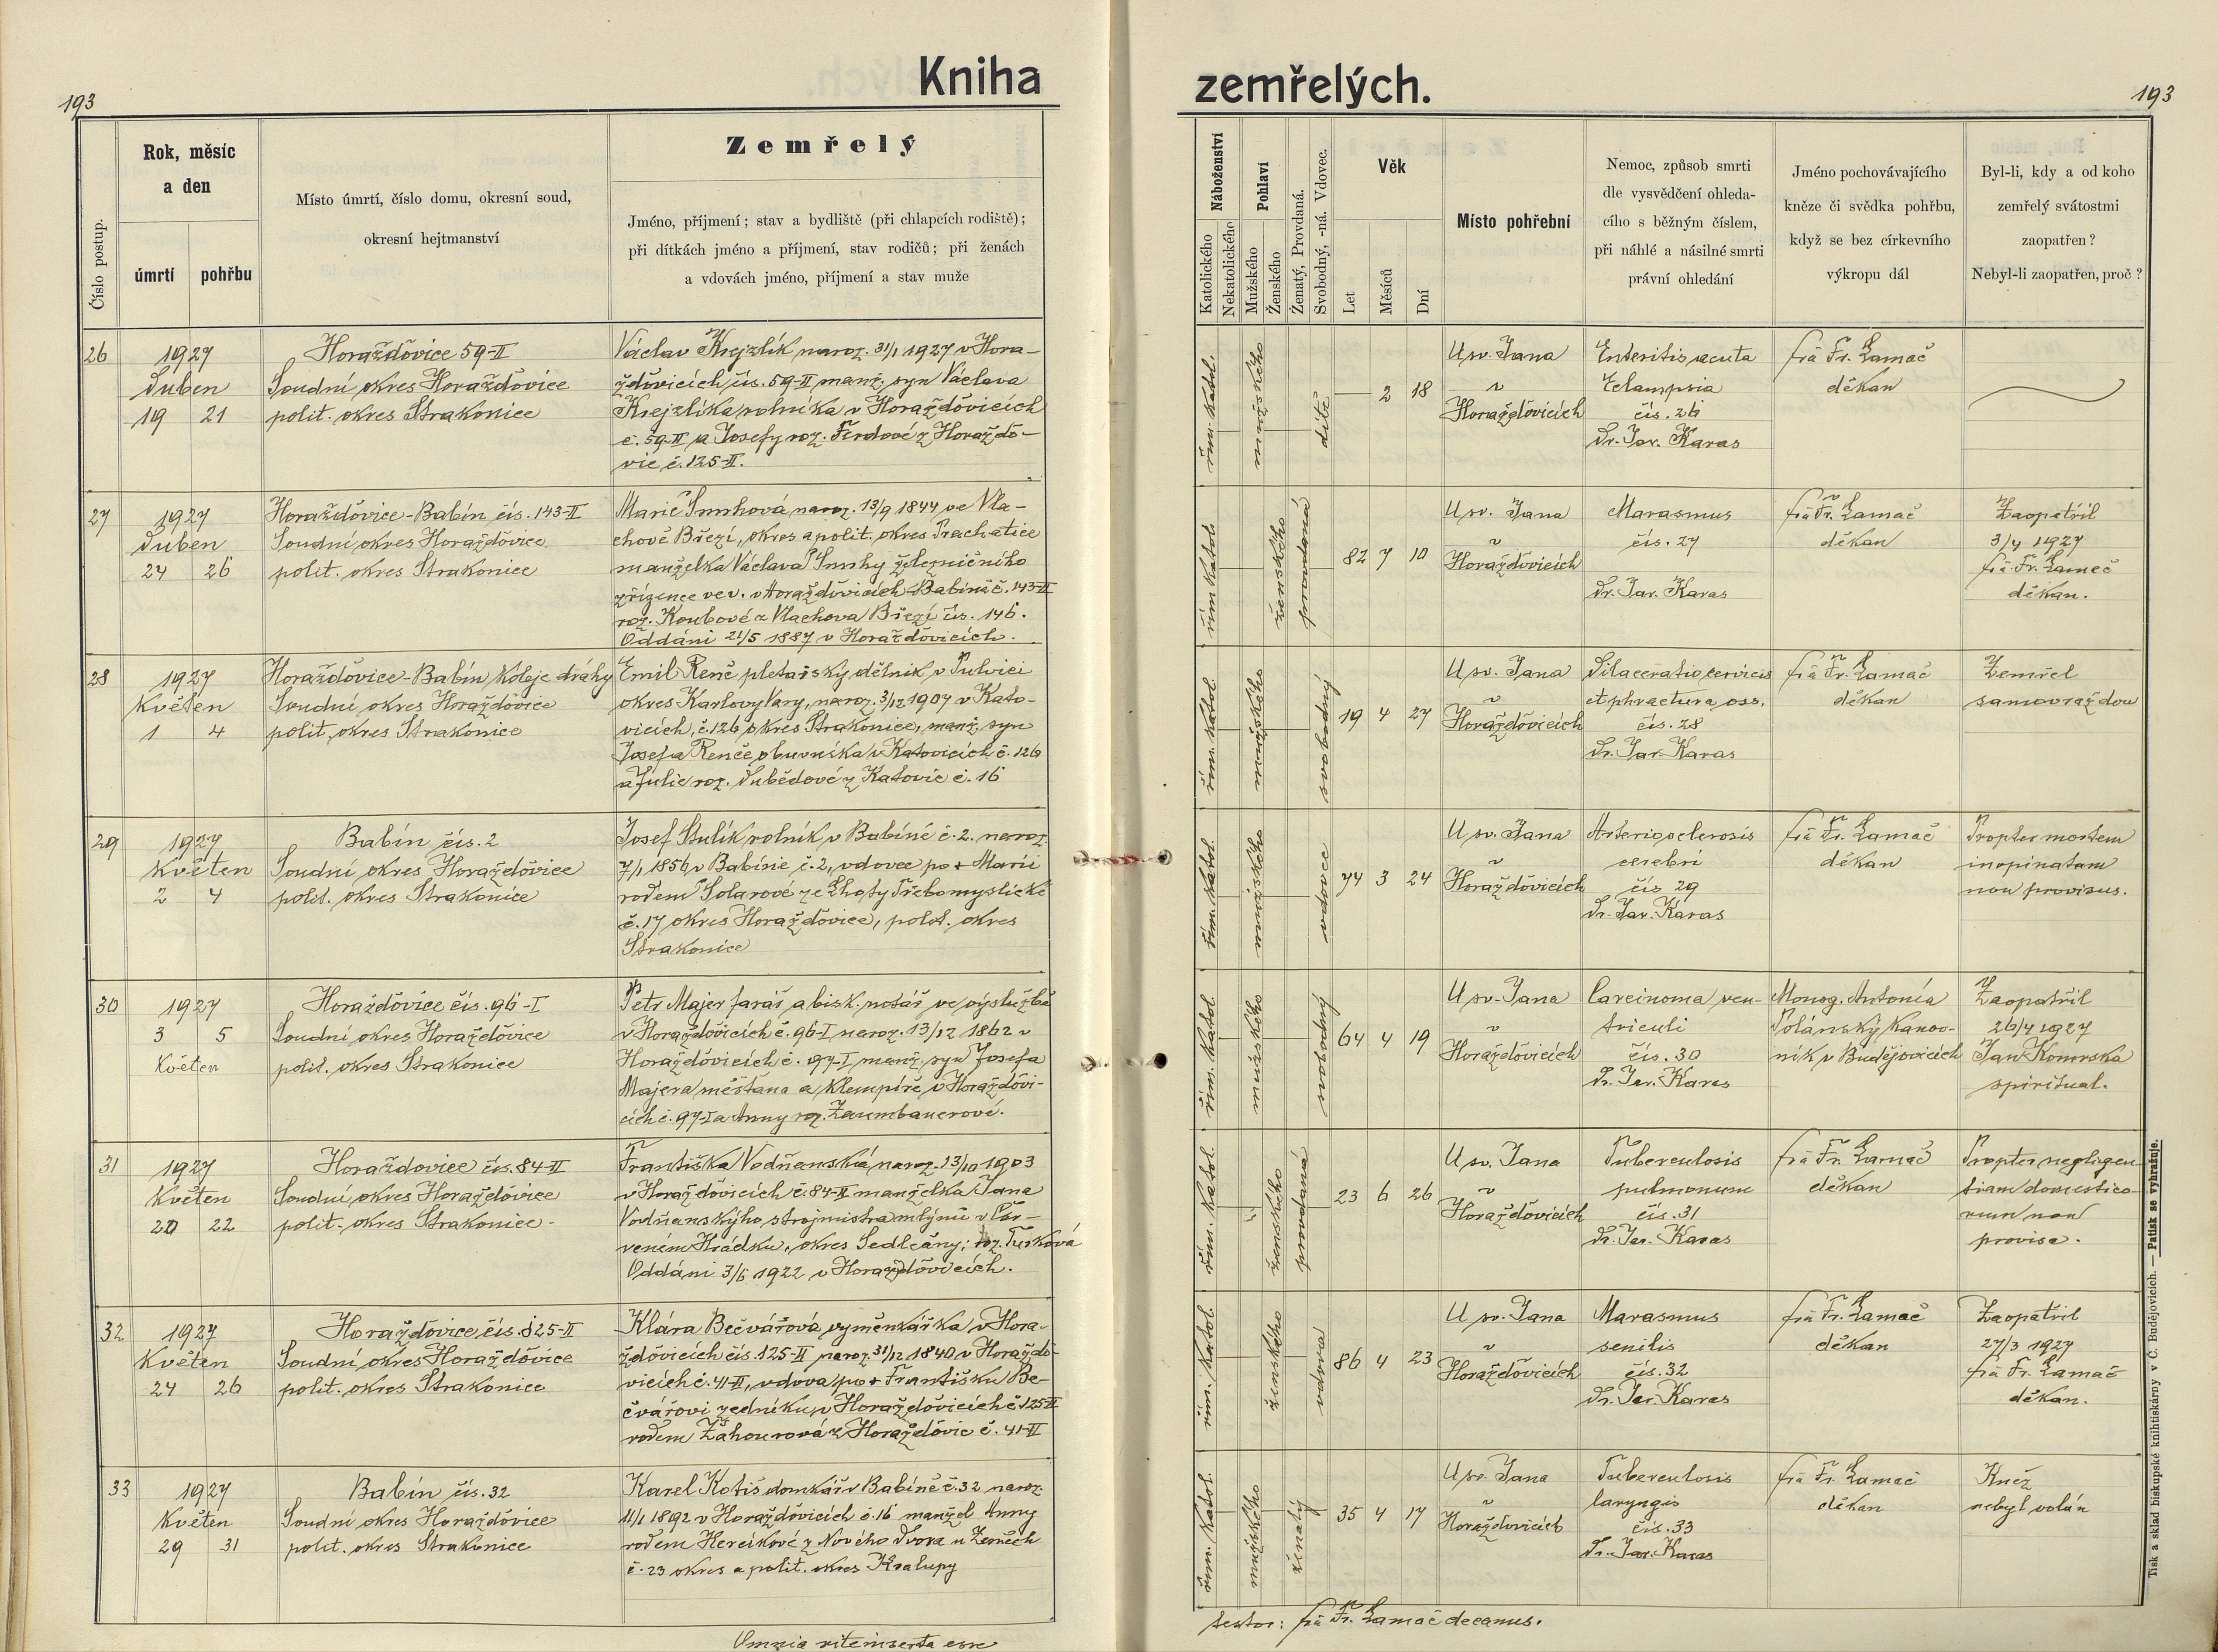 193
Kniha
Číslo postup.
Rok, měsíc
a den
úmrtí
pohřbu
Místo úmrtí, číslo domu, okresní soud,
okresní hejtmanství
Zemřelý
Jméno, příjmení; stav a bydliště (při chlapcích rodiště);
při dítkách jméno a příjmení, stav rodičů; při ženách
a vdovách jméno, příjmení a stav muže
26
1927
Duben
19 21
Horažďovice 59-II
Soudní okres Horažďovice
polit. okres Strakonice
Václav Krejzlík naroz. 31/1 1927 v Hora-
žďovicích čís. 59-II manž. syn Václava
Krejzlíka rolníka v Horažďovicích
č. 59-II a Josefy roz. z Horažďo-
vic č. 125-II.
27
1927
Duben
24 26
Horažďovice-Babín čís. 143-II
Soudní okres Horažďovice
polit. okres Strakonice
Marie Smrhová naroz. 13/9 1844 ve Vla-
chově Březí, okres a polit. okres Prachatice
manželka Václava Smrhy železničního
zřízence ve v. v Horažďovicích-Babíně č. 143-II
roz. Koubové z Vlachova Březí čís. 146.
Oddáni 21/5 1887 v Horažďovicích.
28
1927
Květen
1 4
Horažďovice-Babín koleje dráhy
Soudní okres Horažďovice
polit. okres Strakonice
Emil Renč pletařský dělník v
okres Karlovy Vary, naroz. 3/12 1907 v Kato-
vicích, č. 126 okres Strakonice, manž. syn
Josefa Renče obuvníka v Katovicích č. 126
a Julie roz. z Katovic č. 16
29
1927
Květen
2 4
Babín čís. 2
Soudní okres Horažďovice
polit. okres Strakonice
Josef Stulík rolník v Babíně č. 2. naroz.
7/1 1856 v Babíně č. 2, vdovec po + Marii
rodem Solarové ze Lhoty Třebomyslické
č. 17 okres Horažďovice, polit. okres
Strakonice
30
1927
3 5
Květen
Horažďovice čís. 96-I
Soudní okres Horažďovice
polit. okres Strakonice
Petr Majer farář a bisk. notář ve výslužbě
v Horažďovicích č. 96-I naroz. 13/12 1862 v
Horažďovicích č. 97-I manž. syn Josefa
Majera měšťana a klempíře v Horažďovi-
cích č. 97-I a Anny roz. Zaumbauerové.
31
1927
Květen
20 22
Horažďovice čís. 84-II
Soudní okres Horažďovice
polit. okres Strakonice
Františka Vodňanská naroz. 13/10 1903
v Horažďovicích č. 84-II manželka Jana
Vodňanského strojmistra mlýnů v Čer-
veném Hrádku, okres Sedlčany; roz. Turková
Oddáni 3/6 1922 v Horažďovicích.
32
1927
Květen
24 26
Horažďovice čís. 125-II
Soudní okres Horažďovice
polit. okres Strakonice
Klára Bečvářová výměnkářka v Hora-
žďovicích čís. 125-II naroz. 31/12 1840 v Horažďo-
vicích č. 41-II, vdova po + Františku Be-
čvářovi zedníku v Horažďovicích č. 125-II
rodem Zahourová z Horažďovic č. 41-II
33
1927
Květen
29 31
Babín čís. 32
Soudní okres Horažďovice
polit. okres Strakonice
Karel Kotiš domkář v Babíně č. 32 naroz.
11/1 1892 v Horažďovicích č. 16 manžel Anny
rodem Hercíkové z Nového Dvora u
č. 23 okres a polit. okres Kralupy
Omnia rite inserta esse
193
zemřelých.
Náboženství
Katolického
Nekatolického
Pohlaví
Mužského
Ženského
Ženatý, Provdaná.
Svobodný, -ná. Vdovec.
Věk
Let
Měsíců
Dní
Místo pohřební
Nemoc, způsob smrti
dle vysvědčení ohleda-
cího s běžným číslem,
při náhlé a násilné smrti
právní ohledání
Jméno pochovávajícího
kněze či svědka pohřbu,
když se bez církevního
výkropu dál
Byl-li, kdy a od koho
zemřelý svátostmi
zaopatřen?
Nebyl-li zaopatřen, proč?
řím. katol.
mužského
dítě
— 2 18
U sv. Jana
v
Horažďovicích
Enteritis acuta
Eclampsia
čís. 26
Dr. Jar. Karas
Fr. Lamač
děkan
řím. katol.
ženského
provdaná
82 7 10
U sv. Jana
v
Horažďovicích
Marasmus
čís. 27
Dr. Jar. Karas
Fr. Lamač
děkan
Zaopatřil
3/4 1927
Fr. Lamač
děkan.
řím. katol.
mužského
svobodný
19 4 27
U sv. Jana
v
Horažďovicích
Dilaceratio cervicis
et phractura oss.
čís. 28
Dr. Jar. Karas
Fr. Lamač
děkan
Zemřel
samovraždou
řím. katol.
mužského
vdovec
74 3 24
U sv. Jana
v
Horažďovicích
Arteriosclerosis
cerebri
čís 29
Dr. Jar. Karas
Fr. Lamač
děkan
Propter mortem
inopinatam
non provisus.
řím. katol.
mužského
svobodný
64 4 19
U sv. Jana
v
Horažďovicích
Carcinoma ven-
triculi
čís. 30
Dr. Jar. Karas
Monsg. Antonín
Polánský kanov-
ník v Budějovicích
Zaopatřil
26/4 1927
Jan
spirituál.
řím. katol.
ženského
provdaná
23 6 26
U sv. Jana
v
Horažďovicích
Tuberculosis
pulmonum
čís. 31
Dr. Jar. Karas
Fr. Lamač
děkan
Propter negligen-
tiam domestico-
rum non
provisa.
řím. katol.
ženského
vdova
86 4 23
U sv. Jana
v
Horažďovicích
Marasmus
senilis
čís. 32
Dr. Jar. Karas
Fr. Lamač
děkan
Zaopatřil
27/3 1927
Fr. Lamač
děkan.
řím. katol.
mužského
ženatý
35 4 17
U sv. Jana
v
Horažďovicích
Tuberculosis
laryngis
čís. 33
Dr. Jar. Karas
Fr. Lamač
děkan
Kněz
nebyl volán
testor: Fr. Lamač decanus.
Tisk a sklad biskupské knihtiskárny v Č. Budějovicích. — Patisk se vyhražuje.